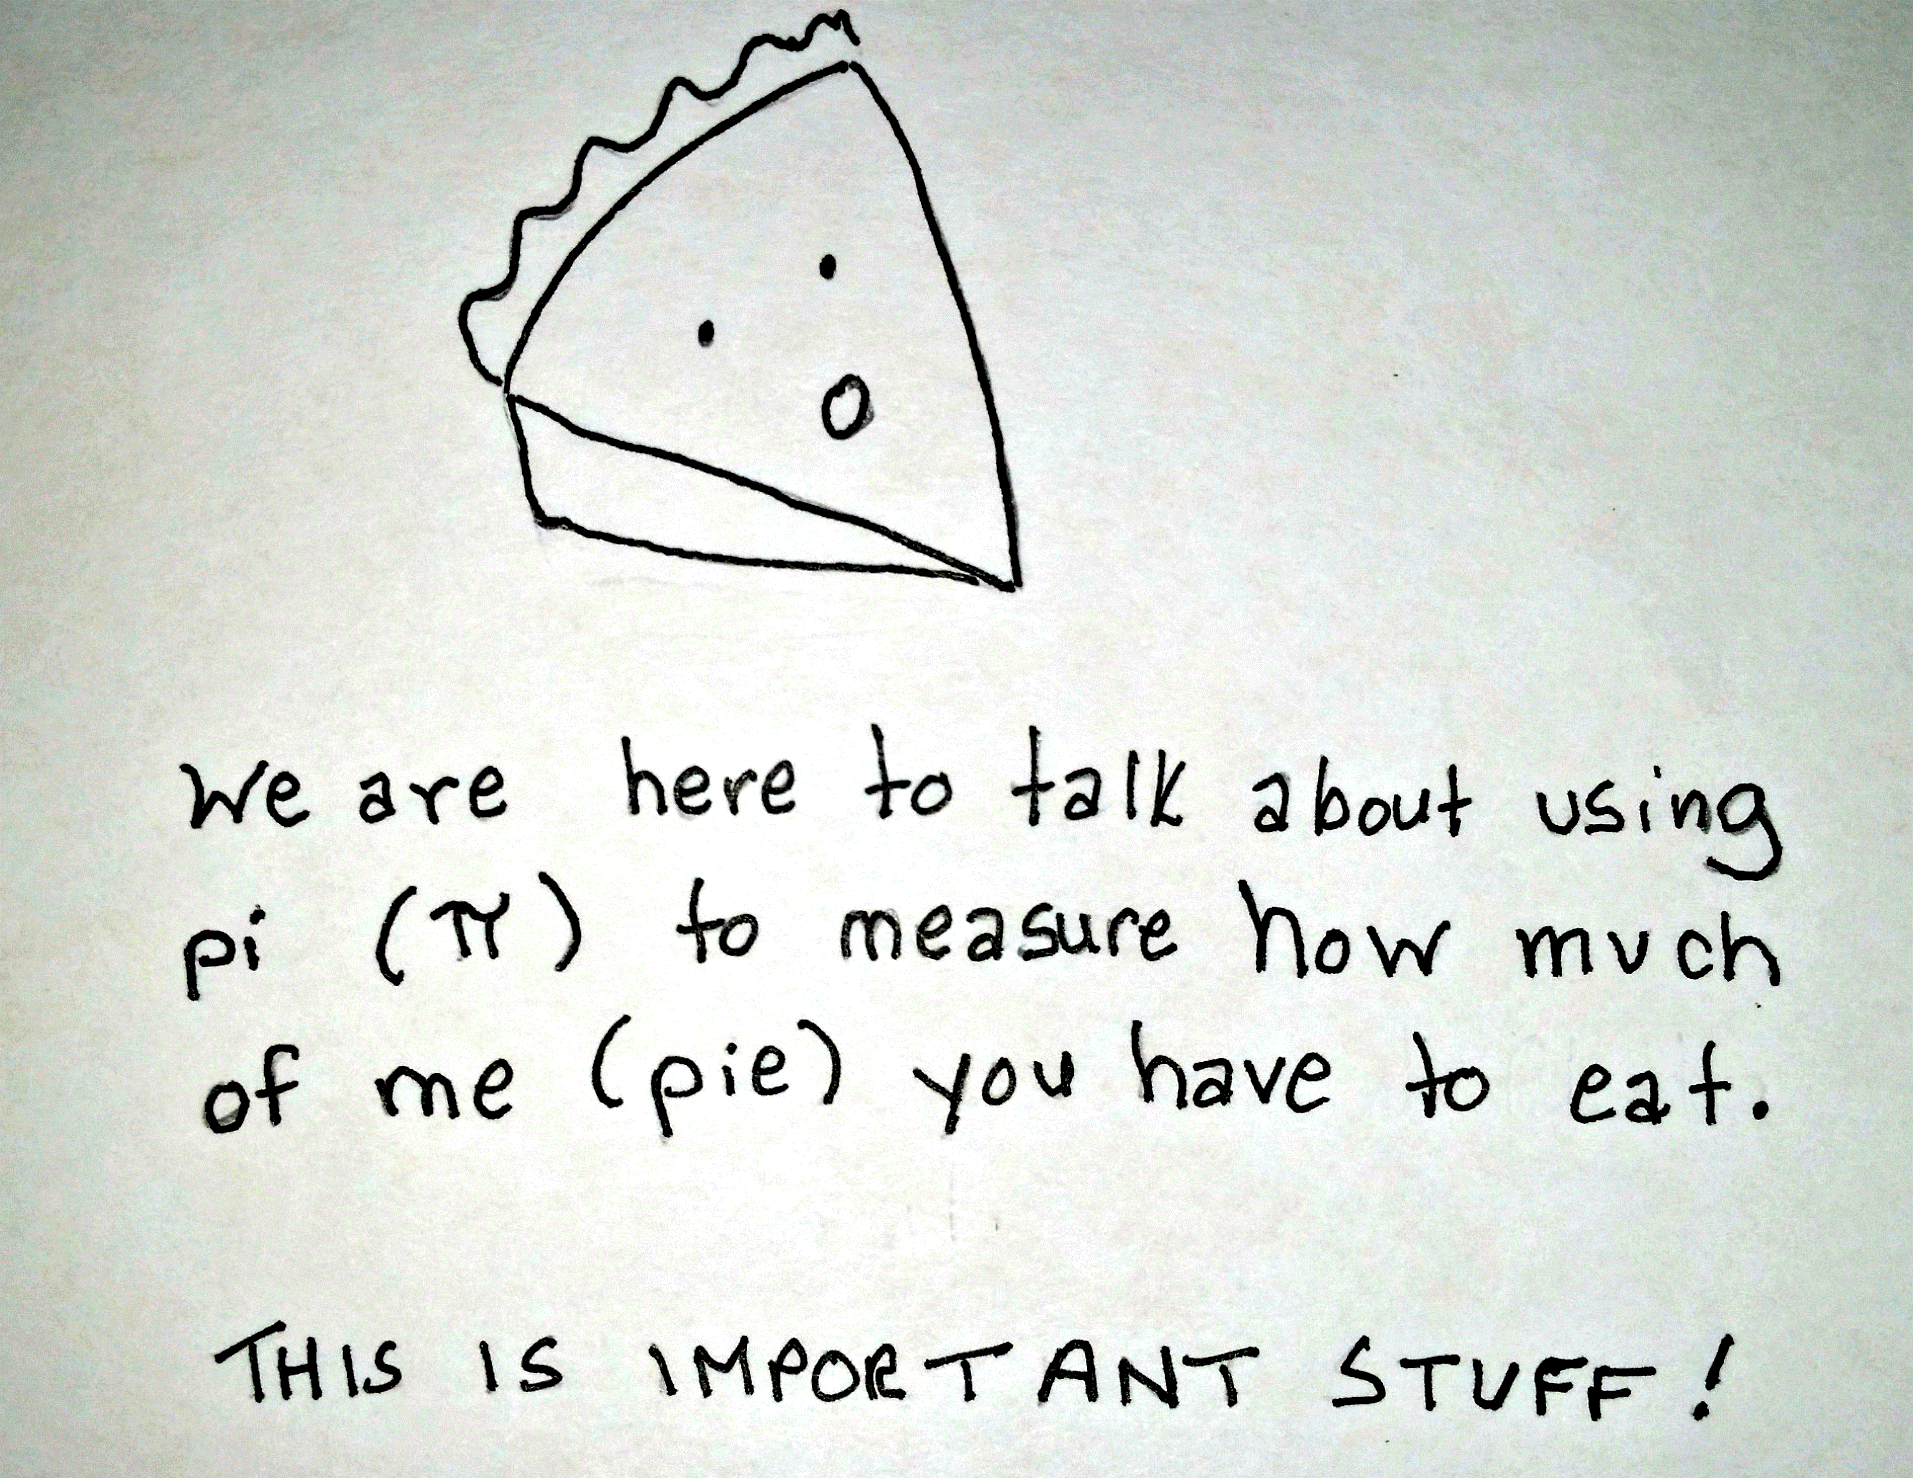 We are here to talk about using
pi (π) to measure how much
of me (pie) you have to eat.
THIS IS IMPORTANT STUFF!